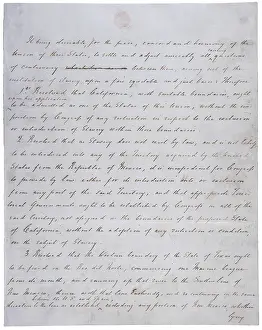 It being desirable for the peace, concord and harmony of the
Union of these States, to settle and adjust amicably all questions
of controversy between them, arising out of the
institution of slavery, upon a fair equitable and just basis: Therefore
1st Resolved that California, with suitable boundaries, ought
upon her application
to be admitted as one of the States of this Union, without the im-
position by Congress of any restriction in respect to the exclusion
or introduction of Slavery within those boundaries
2. Resolved that as Slavery does not exist by law, and is not likely
to be introduced into any of the Territory acquired by the United
States from the Republic of Mexico, it is inexpedient for Congress
to provide by law either for its introduction into or exclusion
from any part of the said Territory; and that appropriate Terri-
torial Governments ought to be established by Congress in all of the
said Territory, not assigned as the boundaries of the proposed State
of California, without the adoption of any restriction or condition
on the subject of Slavery
3 Resolved that the Western boundary of the State of Texas ought
to be fixed on the Rio del Norte, commencing one Marine League
from its mouth, and running up that river to the Southern line of
New Mexico, thence with that line Eastwardly, and so continuing in the same
between the U.S. and Spain,
direction to the line as established, excluding any portion of New Mexico, whether
lying